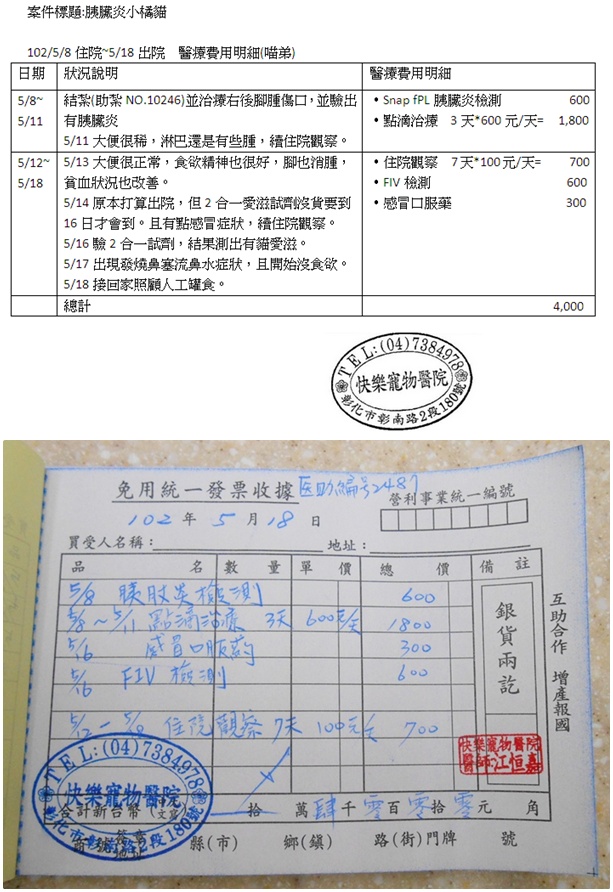 案件標題:胰臟炎小橘貓
102/5/8 住院~5/18 出院　醫療費用明細(喵弟)
日期　狀況說明　醫療費用明細
5/8~
5/11
結紮(助紮 NO.10246)並治療右後腳腫傷口，並驗出
有胰臟炎
5/11 大便很稀，淋巴還是有些腫，續住院觀察。
• Snap fPL 胰臟炎檢測　600
• 點滴治療　3 天*600 元/天=　1,800
5/12~
5/18
5/13 大便很正常，食欲精神也很好，腳也消腫，
貧血狀況也改善。
5/14 原本打算出院，但 2 合一愛滋試劑沒貨要到
16 日才會到。且有點感冒症狀，續住院觀察。
5/16 驗 2 合一試劑，結果測出有貓愛滋。
5/17 出現發燒鼻塞流鼻水症狀，且開始沒食欲。
5/18 接回家照顧人工罐食。
• 住院觀察　7 天*100 元/天=　700
• FIV 檢測　600
• 感冒口服藥　300
總計　4,000
TEL:(04)7384978
快樂寵物醫院
彰化市彰南路2段180號
免用統一發票收據 医助編号2487
營利事業統一編號
102 年 5 月 18 日
買受人名稱：　地址：
品名　數量　單價　總價　備註
5/8 胰肽炎檢測　600
5/8～5/11 點滴治療　3天　600元/天　1800
5/16 感冒口服药　300
5/16 FIV 檢測　600
5/12－5/18 住院觀察　7天　100元/天　700
銀貨兩訖
互助合作 增產報國
快樂寵物醫院
醫師:江恒嘉
TEL:(04)7384978
快樂寵物醫院
彰化市彰南路2段180號
合計新台幣　拾　萬肆千零百零拾零元　角
縣(市)　鄉(鎮)　路(街)門牌　號